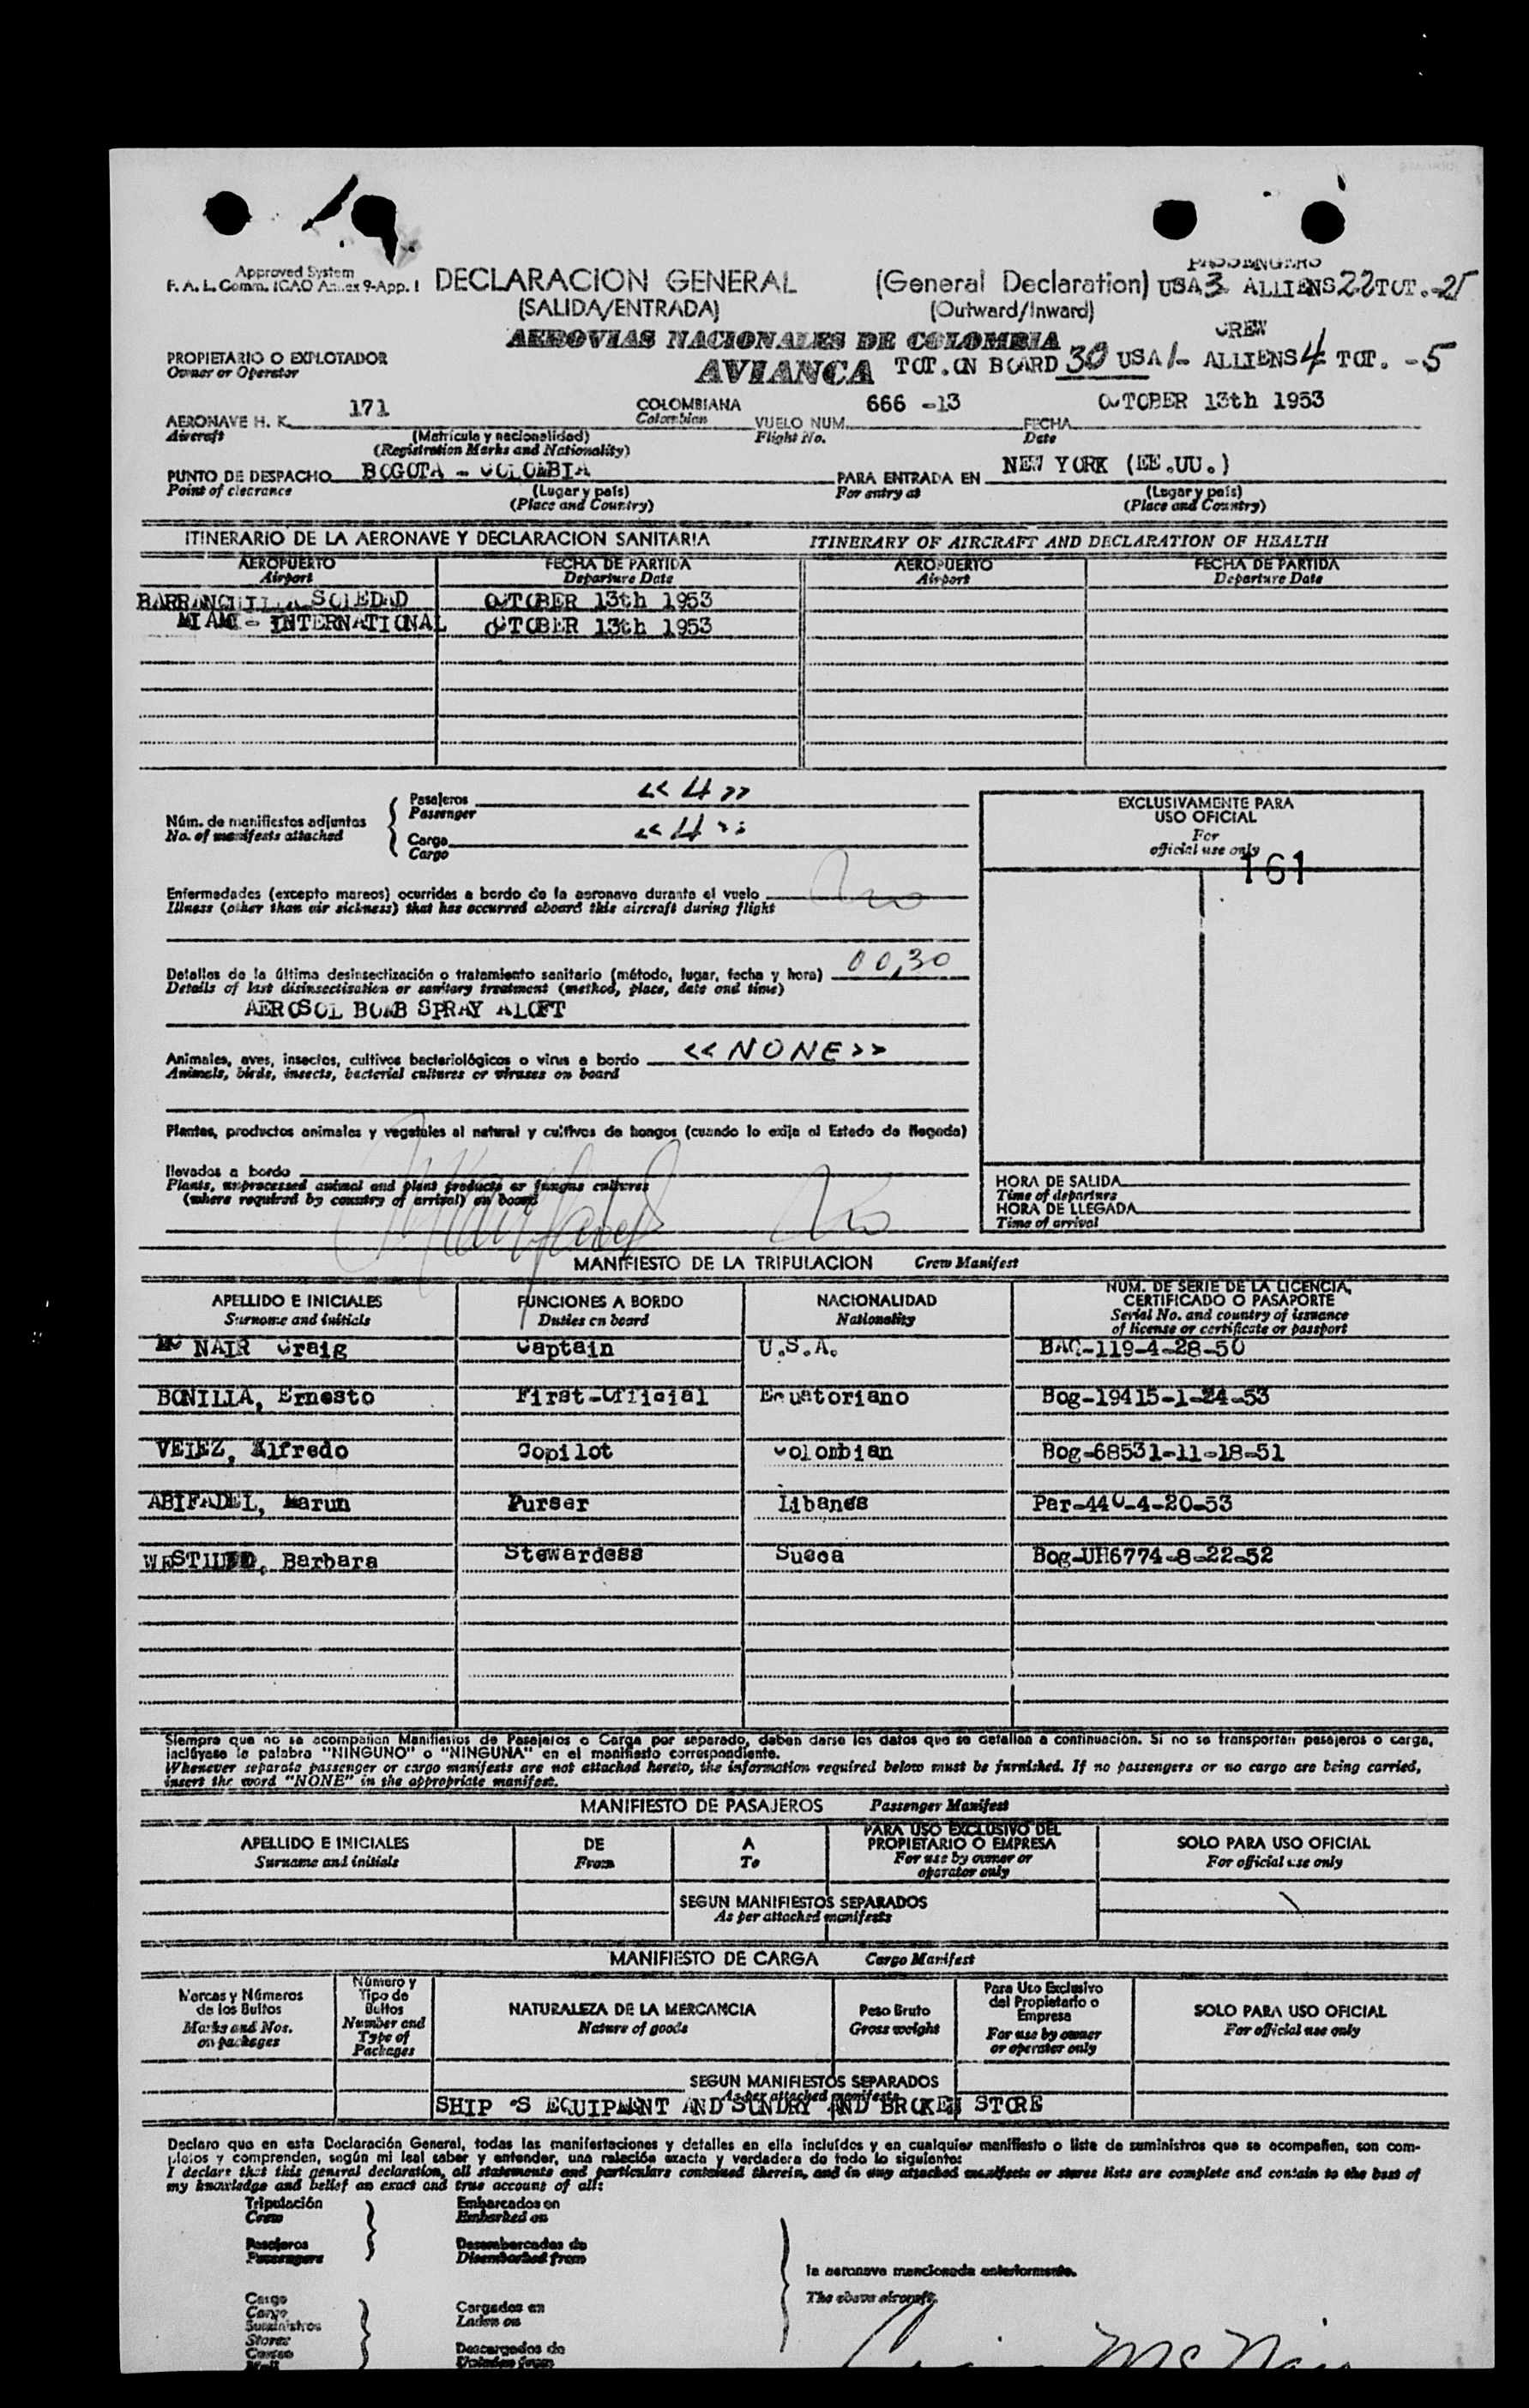 Approved System
F. A. L. Comm. ICAO Annex 9-App. 1
DECLARACION GENERAL (General Declaration)
(SALIDA/ENTRADA) (Outward/Inward)
PASSENGERS
USA 3 ALLIENS 22 TOT.-25
AEROVIAS NACIONALES DE COLOMBIA
AVIANCA
CREW
TOT. ON BOARD 30 USA 1- ALLIENS 4 TOT. -5
PROPIETARIO O EXPLOTADOR
Owner or Operator
AERONAVE H. K. 171 COLOMBIANA VUELO NUM. 666 -13 FECHA OCTOBER 13th 1953
Aircraft (Matrícula y nacionalidad) Colombian Flight No. Date
(Registration Marks and Nationality)
PUNTO DE DESPACHO BOGOTA - COLOMBIA PARA ENTRADA EN NEW YORK (EE.UU.)
Point of clearance (Lugar y país) For entry at (Lugar y país)
(Place and Country) (Place and Country)
ITINERARIO DE LA AERONAVE Y DECLARACION SANITARIA ITINERARY OF AIRCRAFT AND DECLARATION OF HEALTH
AEROPUERTO FECHA DE PARTIDA AEROPUERTO FECHA DE PARTIDA
Airport Departure Date Airport Departure Date
BARRANQUILLA SOLEDAD OCTOBER 13th 1953
MIAMI - INTERNATIONAL OCTOBER 13th 1953
Núm. de manifiestos adjuntos
No. of manifests attached
Pasajeros << 4 >>
Passenger
Carga << 4 >>
Cargo
EXCLUSIVAMENTE PARA
USO OFICIAL
For
official use only
161
Enfermedades (excepto mareos) ocurridas a bordo de la aeronave durante el vuelo No
Illness (other than air sickness) that has occurred aboard this aircraft during flight
Detalles de la última desinsectización o tratamiento sanitario (método, lugar, fecha y hora) 00,30
Details of last disinsectization or sanitary treatment (method, place, date and time)
AEROSOL BOMB SPRAY ALOFT
Animales, aves, insectos, cultivos bacteriológicos o virus a bordo << NONE >>
Animals, birds, insects, bacterial cultures or viruses on board
Plantas, productos animales y vegetales al natural y cultivos de hongos (cuando lo exija el Estado de llegada)
llevados a bordo
Plants, unprocessed animal and plant products or fungus cultures
(where required by country of arrival) on board
No
HORA DE SALIDA
Time of departure
HORA DE LLEGADA
Time of arrival
MANIFIESTO DE LA TRIPULACION Crew Manifest
APELLIDO E INICIALES FUNCIONES A BORDO NACIONALIDAD NUM. DE SERIE DE LA LICENCIA, CERTIFICADO O PASAPORTE
Surname and initials Duties on board Nationality Serial No. and country of issuance of license or certificate or passport
Mc NAIR Craig Captain U.S.A. BAQ-119-4-28-50
BONILLA, Ernesto First-Official Ecuatoriano Bog-19415-1-24-53
VELEZ, Alfredo Copilot Colombian Bog-68531-11-18-51
ABIFADEL, Marun Purser Libanes Par-440-4-20-53
Barbara Stewardess Sueca Bog-UH6774-8-22-52
Siempre que no se acompañen Manifiestos de Pasajeros o Carga por separado, deben darse los datos que se detallan a continuación. Si no se transportan pasajeros o carga,
inclúyase la palabra "NINGUNO" o "NINGUNA" en el manifiesto correspondiente.
Whenever separate passenger or cargo manifests are not attached hereto, the information required below must be furnished. If no passengers or no cargo are being carried,
insert the word "NONE" in the appropriate manifest.
MANIFIESTO DE PASAJEROS Passenger Manifest
APELLIDO E INICIALES DE A PARA USO EXCLUSIVO DEL PROPIETARIO O EMPRESA SOLO PARA USO OFICIAL
Surname and initials From To For use by owner or operator only For official use only
SEGUN MANIFIESTOS SEPARADOS
As per attached manifests
MANIFIESTO DE CARGA Cargo Manifest
Marcas y Números de los Bultos Número y Tipo de Bultos NATURALEZA DE LA MERCANCIA Peso Bruto Para Uso Exclusivo del Propietario o Empresa SOLO PARA USO OFICIAL
Marks and Nos. on packages Number and Type of Packages Nature of goods Gross weight For use by owner or operator only For official use only
SEGUN MANIFIESTOS SEPARADOS
As per attached manifests
SHIP'S EQUIPMENT AND SUNDRY AND BROKEN STORE
Declaro que en esta Declaración General, todas las manifestaciones y detalles en ella incluídos y en cualquier manifiesto o lista de suministros que se acompañen, son com-
pletos y comprenden, según mi leal saber y entender, una relación exacta y verdadera de todo lo siguiente:
I declare that this general declaration, all statements and particulars contained therein, and in any attached manifests or stores lists are complete and contain to the best of
my knowledge and belief an exact and true account of all:
Tripulación Embarcados en
Crew Embarked on
Pasajeros Desembarcados de
Passengers Disembarked from
la aeronave mencionada anteriormente.
The above aircraft.
Carga Cargados en
Cargo Laden on
Suministros
Stores Descargados de
Correo Unladen from
Mail
Craig McNair